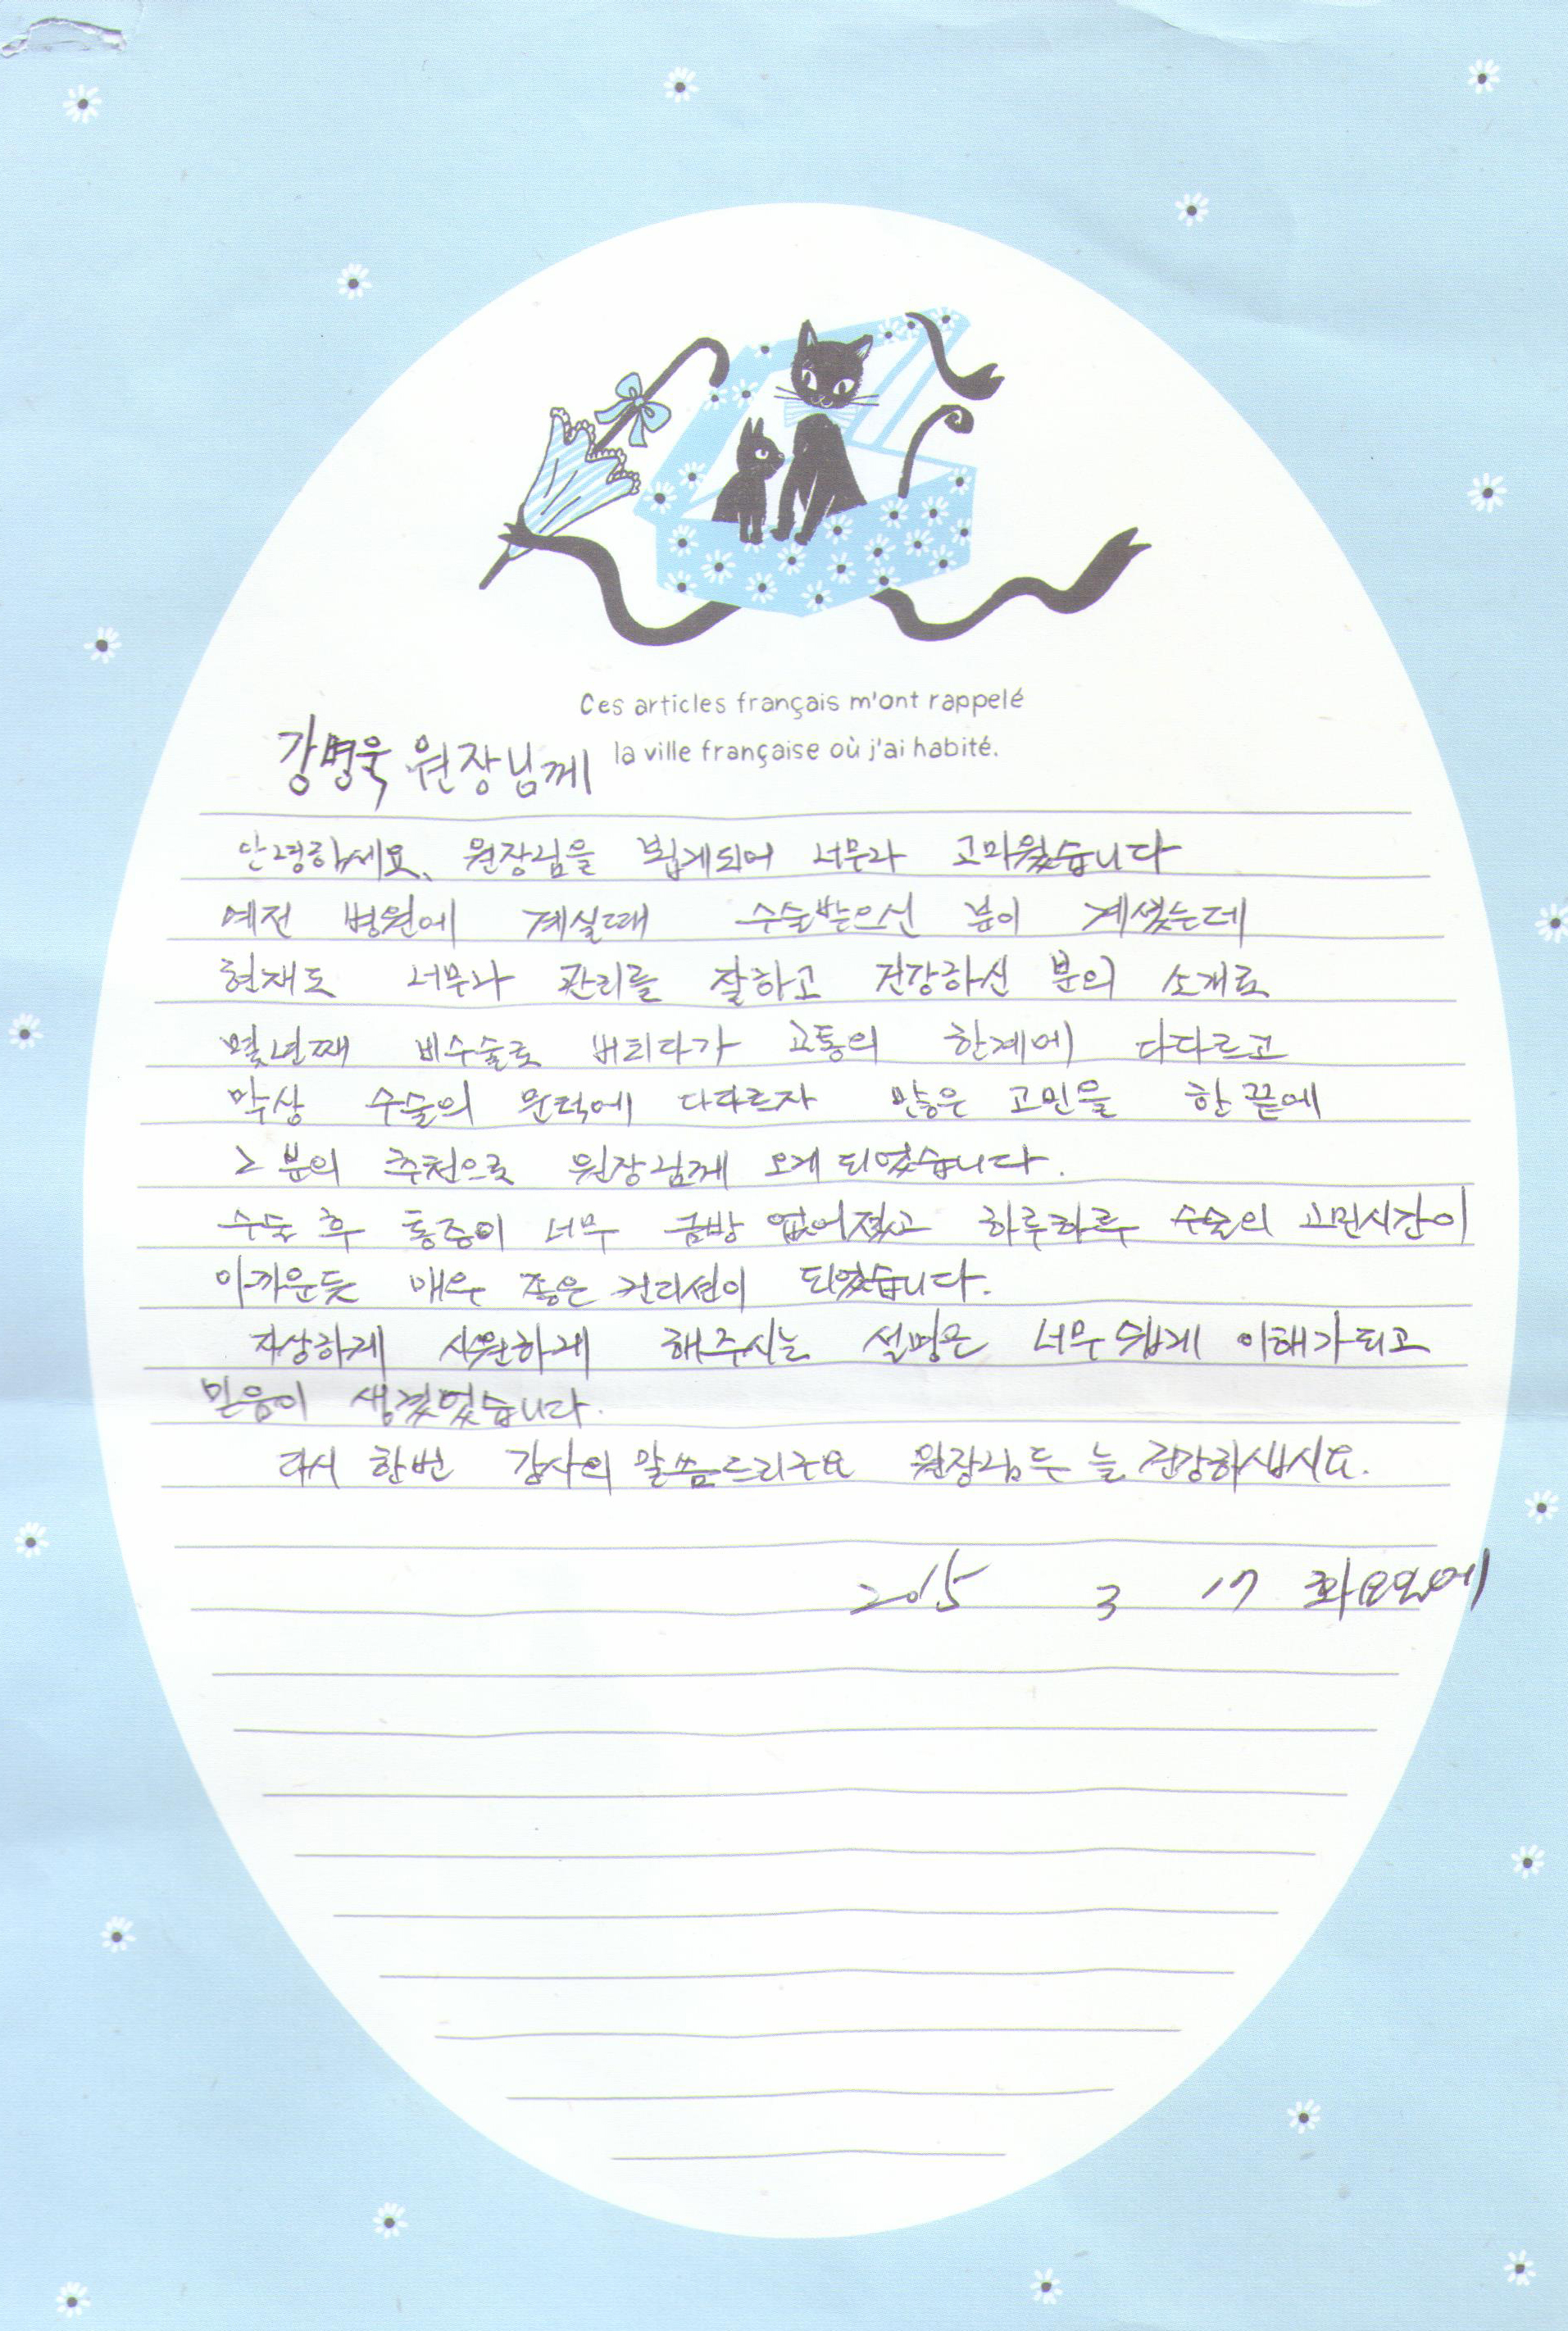 Ces articles français m'ont rappelé
la ville française où j'ai habité.
강병욱 원장님께
안녕하세요, 원장님을 뵙게되어 너무나 고마웠습니다
예전 병원에 계실때 수술받으신 분이 계셨는데
현재도 너무나 관리를 잘하고 건강하신 분의 소개로
몇년째 비수술로 버티다가 고통의 한계에 다다르고
막상 수술의 문턱에 다다르자 많은 고민을 한 끝에
그 분의 추천으로 원장님께 오게 되었습니다.
수술 후 통증이 너무 금방 없어졌고 하루하루 수술의 고민시간이
아까운듯 매우 좋은 컨디션이 되었습니다.
자상하게 시원하게 해주시는 설명은 너무 쉽게 이해가되고
믿음이 생겼었습니다.
다시 한번 감사의 말씀드리구요 원장님두 늘 건강하십시요.
2015 3 17 화요일에